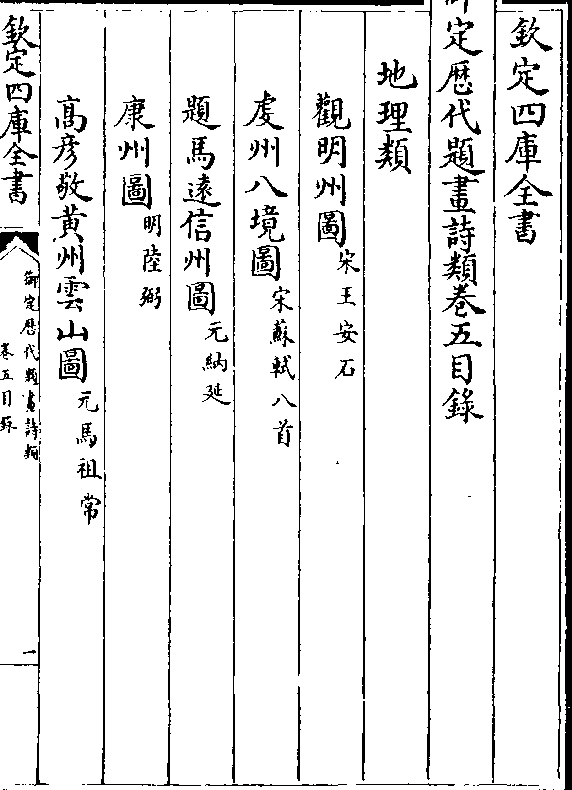 欽定四庫全書
御定歴代題畫詩類卷五目錄
地理類
觀明州圖宋王安石
虔州八境圖宋蘇軾八首
題馬遠信州圖元納延
康州圖明陸弼
高彦敬黄州雲山圖元馬祖常
欽定四庫全書
御定歴代題畫詩類
卷五目錄
一